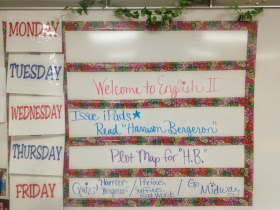 MONDAY
TUESDAY
Welcome to English II
WEDNESDAY
Issue iPads★
Read "Harrison Bergeron"
THURSDAY
Plot Map for "H.B."
FRIDAY
Quiz: "Harrison / Prefixes, / Go
Bergeron" Suffixes Midway
Root Words